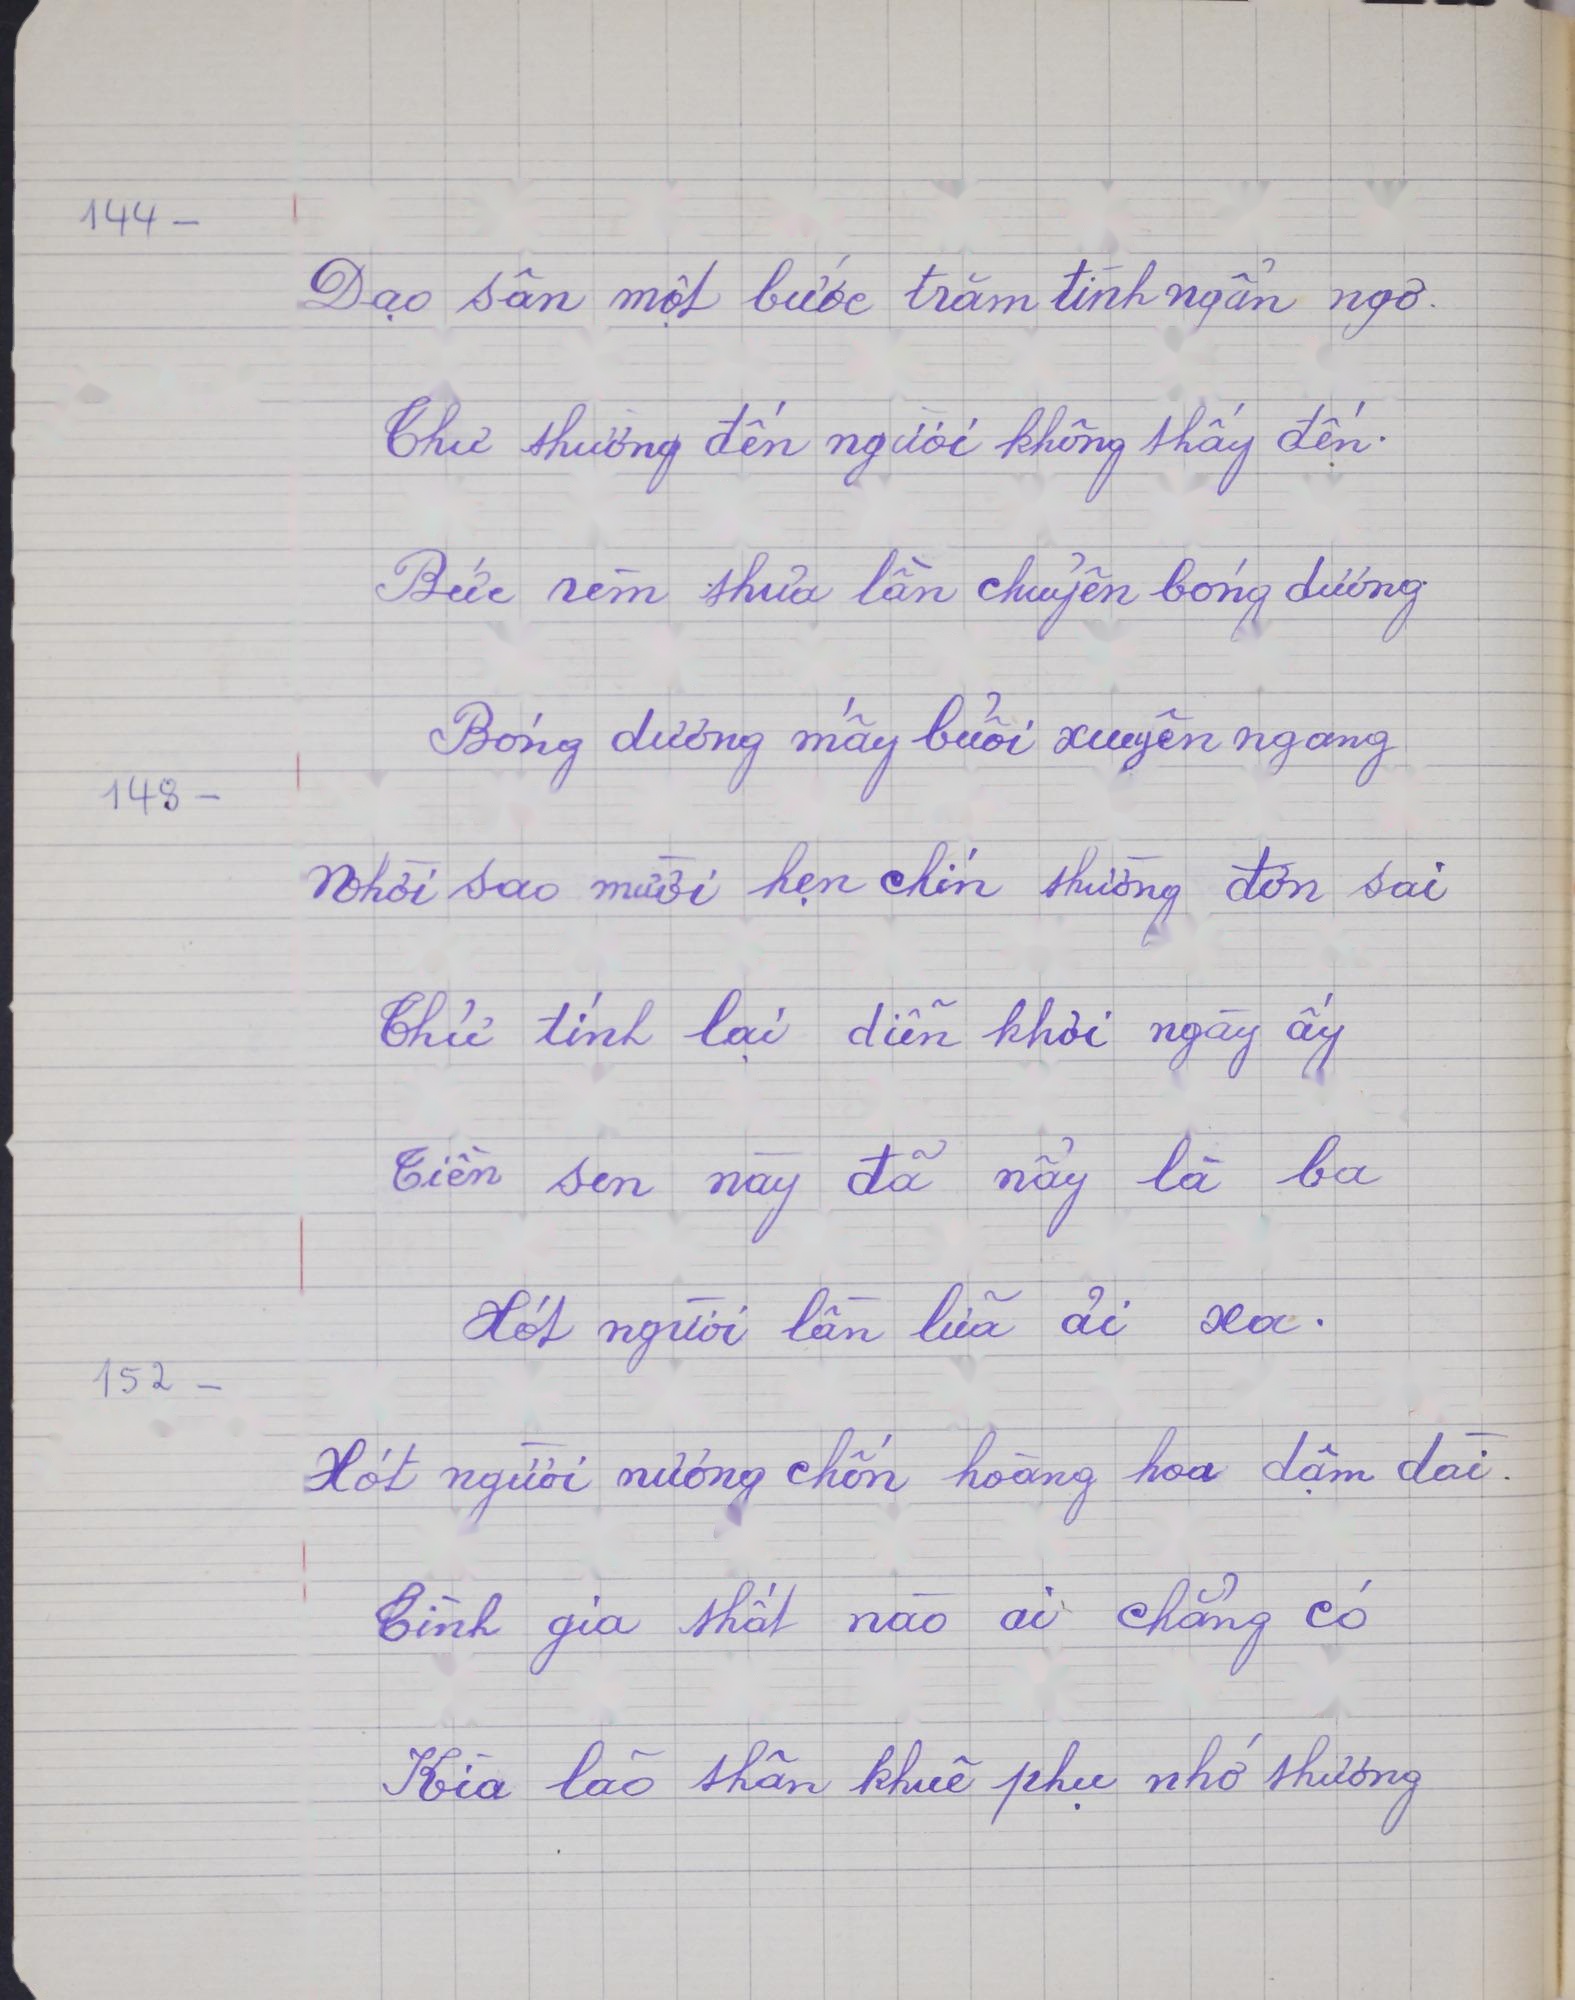 144 –
Dạo sân một bước trăm tình ngẩn ngơ.
Thư thường đến người không thấy đến.
Bức rèm thưa lần chuyển bóng dương
Bóng dương mấy buổi xuyên ngang
148 –
Nhời sao mười hẹn chín thường đơn sai
Thử tính lại diễn khơi ngày ấy
Tiền sen này đã nẩy là ba
Xót người lần lữa ải xa.
152 –
Xót người nương chốn hoàng hoa dặm dài.
Tình gia thất nào ai chẳng có
Kìa lão thân khuê phụ nhớ thương